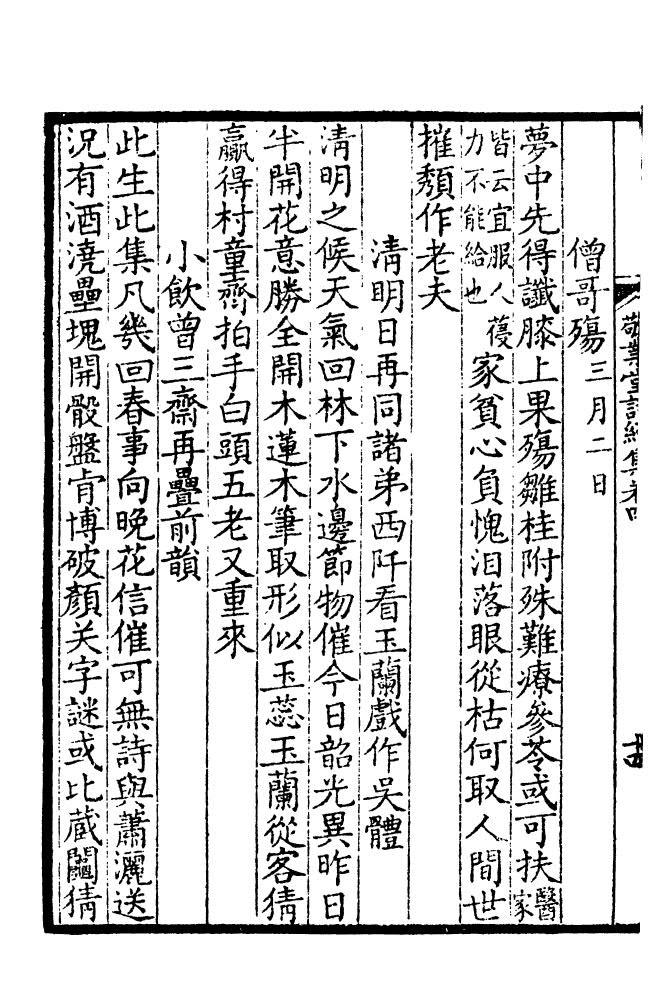 敬業堂詩續集卷四
僧哥殤三月二日
夢中先得讖膝上果殤雛桂附殊難療參苓或可扶醫家
皆云宜服人葠力不能給也家貧心負愧泪落眼從枯何取人間世
摧頽作老夫
清明日再同諸弟西阡看玉蘭戲作吳體
清明之候天氣回林下水邊節物催今日韶光異昨日
半開花意勝全開木蓮木筆取形似玉蕊玉蘭從客猜
贏得村童齊拍手白頭五老又重來
小飲曾三齋再疊前韻
此生此集凡幾回春事向晚花信催可無詩與蕭灑送
況有酒澆壘塊開骰盤肯博破顏关字謎或比藏鬮猜